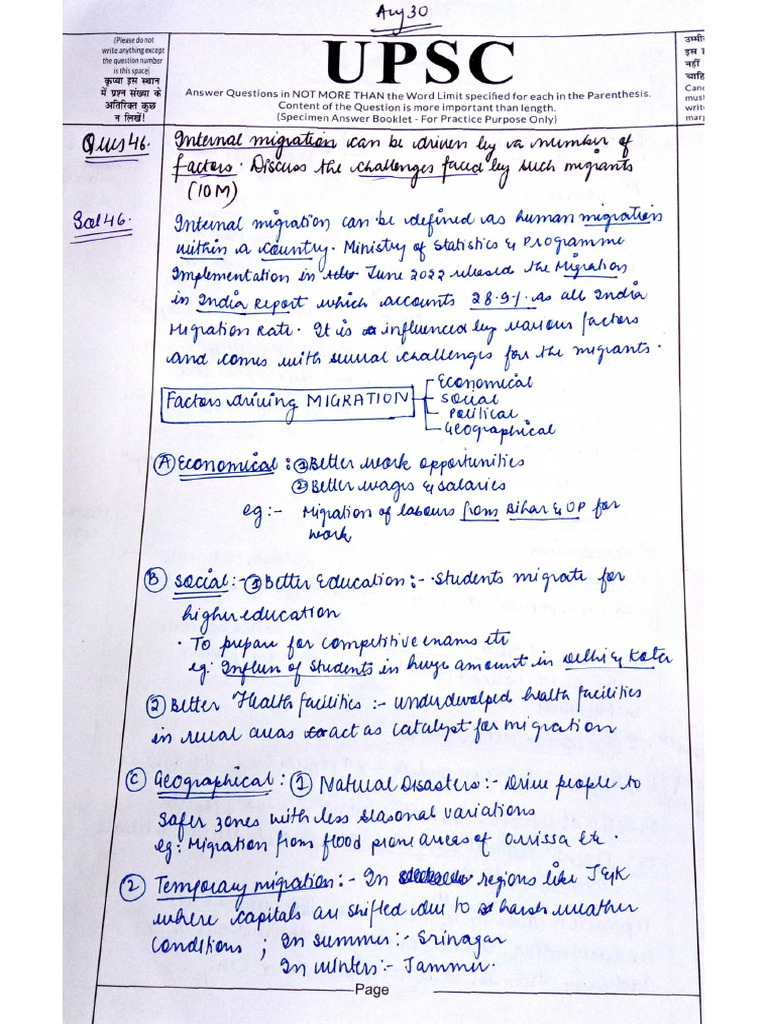 Aug 30
(Please do not
write anything except
the question number
is this space)
कृप्या इस स्थान
में प्रश्न संख्या के
अतिरिक्त कुछ
न लिखें!
UPSC
Answer Questions in NOT MORE THAN the Word Limit specified for each in the Parenthesis.
Content of the Question is more important than length.
(Specimen Answer Booklet - For Practice Purpose Only)
उम्मी
इस
नहीं
चाहि
Canc
must
write
marg
Ques 46. Internal migration can be driven by a number of
factors. Discuss the challenges faced by such migrants
(10M)
Sol 46. Internal migration can be defined as human migration
within a country. Ministry of Statistics & Programme
Implementation in June 2022 released the Migration
in India Report which accounts 28.9% as all India
Migration Rate. It is influenced by various factors
and comes with several challenges for the migrants.
Factors driving MIGRATION
Economical
Social
Political
Geographical
(A) Economical : (1) Better work opportunities
(2) Better wages & salaries
eg :- Migration of labours from Bihar & UP for
work
(B) Social :- (1) Better Education :- Students migrate for
higher education
• To prepare for competitive exams etc
eg: Influx of students in huge amount in Delhi & Kota
(2) Better Health facilities :- underdevelped health facilities
in rural areas act as catalyst for migration
(C) Geographical : (1) Natural Disasters :- Drive people to
safer zones with less seasonal variations
eg: Migration from flood prone areas of Orrissa etc.
(2) Temporary migration :- In regions like J&K
where capitals are shifted due to harsh weather
conditions ; In summer :- Srinagar
In winters :- Jammu.
Page